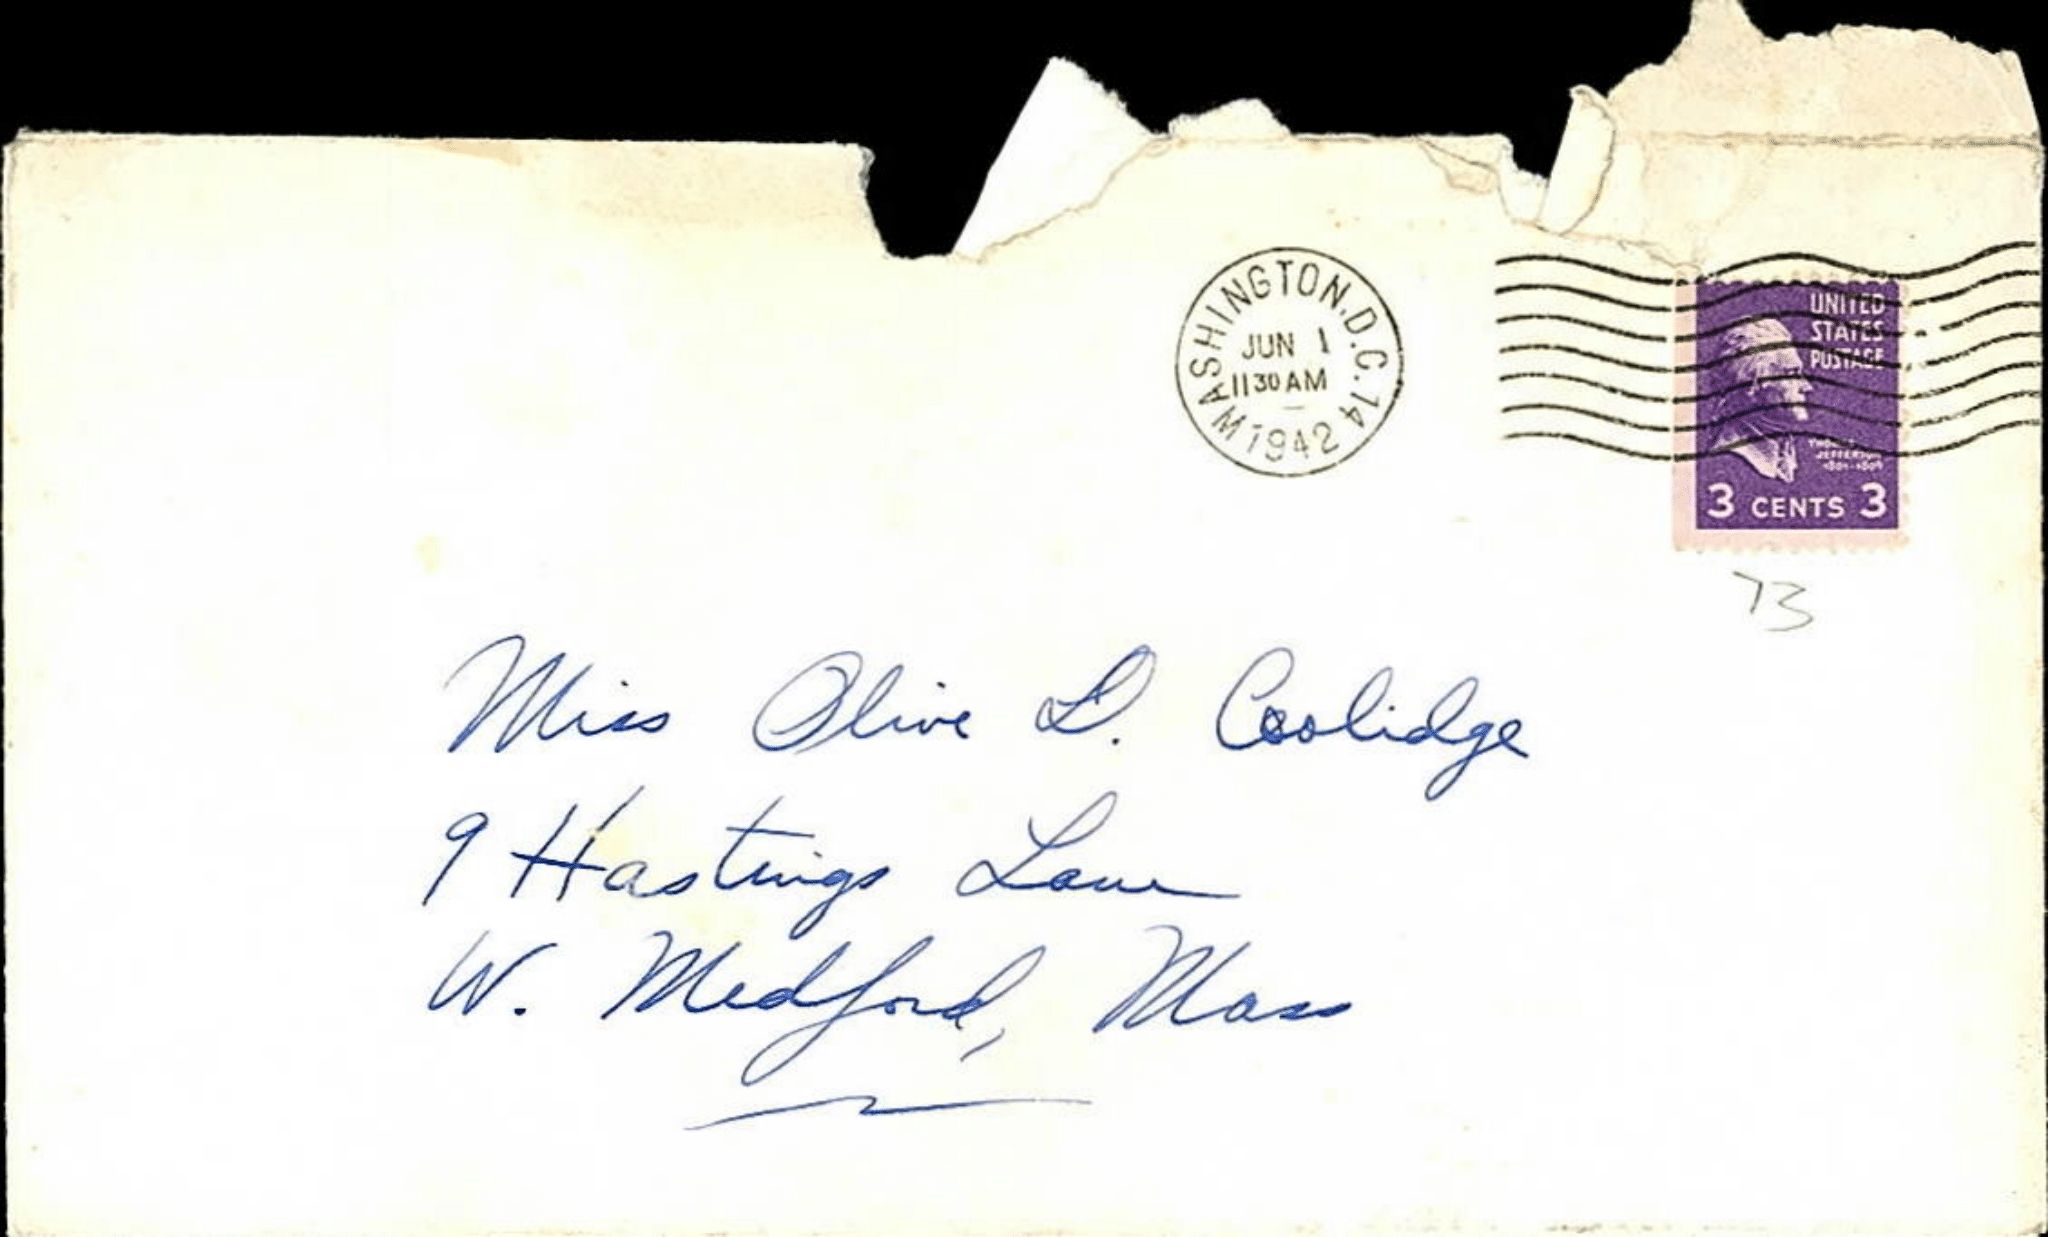 WASHINGTON, D.C. 14
JUN 1
11 30 AM
1942
UNITED
STATES
POSTAGE
JEFFERSON
1801-1809
3 CENTS 3
73
Miss Olive D. Coolidge
9 Hastings Lane
W. Medford, Mass